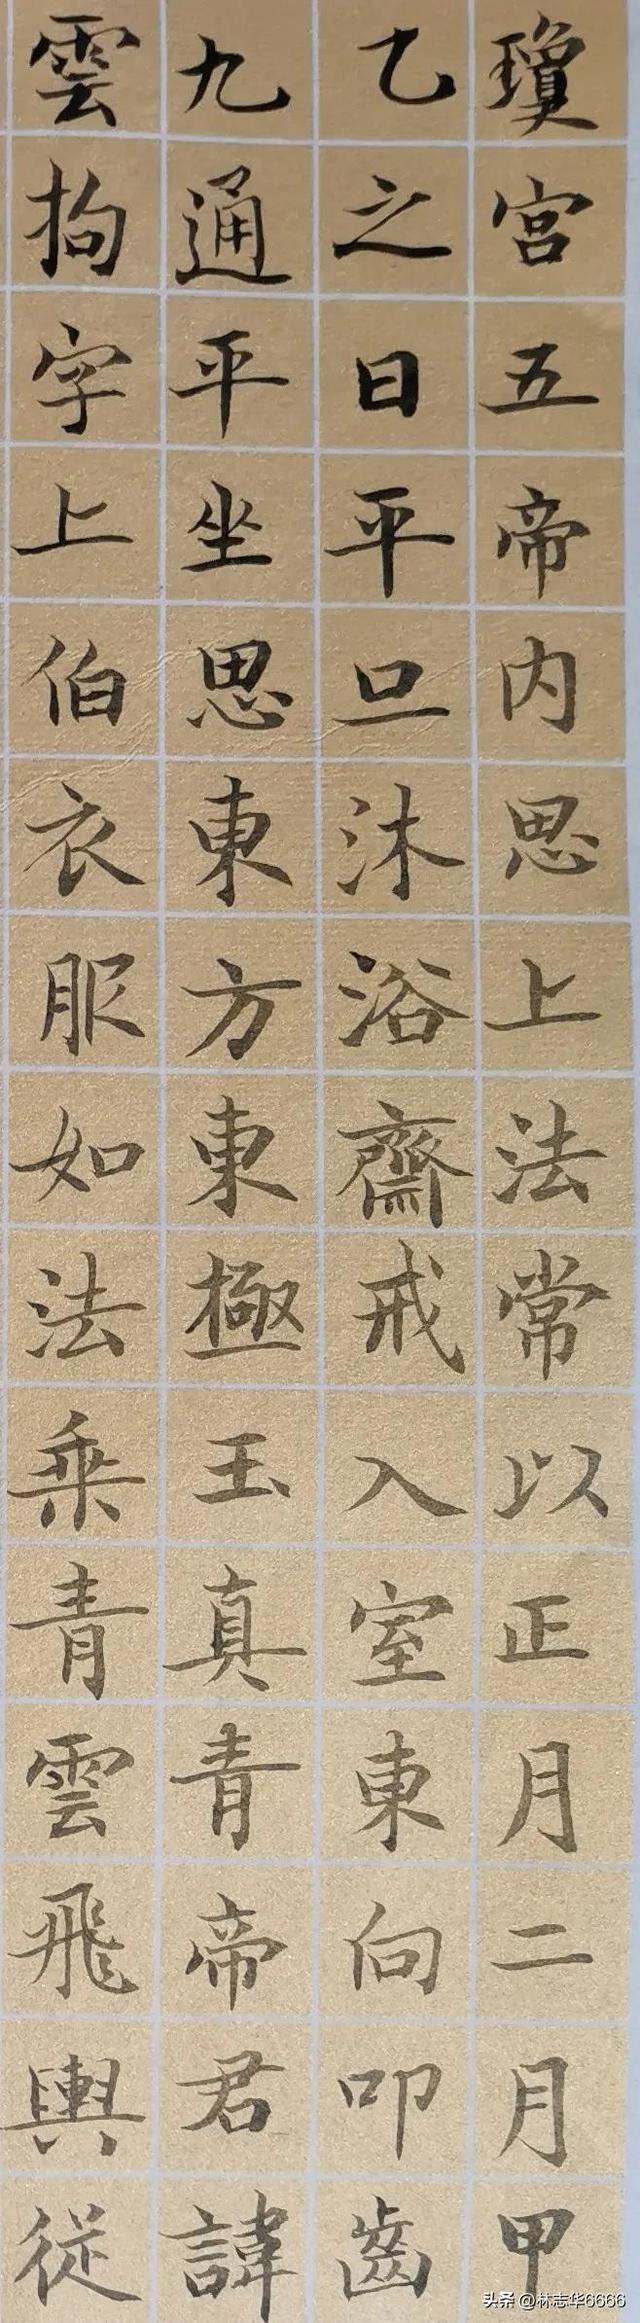 瓊宮五帝内思上法常以正月二月甲
乙之日平旦沐浴齋戒入室東向叩齒
九通平坐思東方東極玉真青帝君諱
雲拘字上伯衣服如法乘青雲飛輿從
头条 @林志华6666